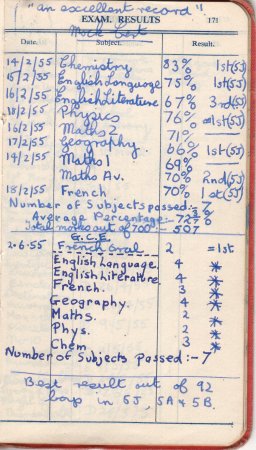 "an excellent record"
EXAM. RESULTS 171
Mock Cert
Date. Subject. Result.
14/2/55 Chemistry 83% 1st(5J)
15/2/55 English Language 75% 1st(5J)
16/2/55 English Literature 67% 3rd(5J)
18/2/55 Physics 76% =1st(5J)
16/2/55 Maths 2 71%
17/2/55 Geography. 66% 1st(5J)
14/2/55 Maths 1 69%
Maths Av. 70% 2nd(5J)
18/2/55 French 70% 1st(5J)
Number of Subjects passed:- 7
Average Percentage:- 72 3/7 %
Total marks out of 700:- 507
G.C.E.
2.6.55 French Oral 2 =1st
English Language. 4 *
English Literature 4 *
French. 3 *
Geography. 4 *
Maths. 2 *
Phys. 2 *
Chem 3 *
Number of Subjects Passed :- 7
Best result out of 92
boys in 5J, 5A & 5B.